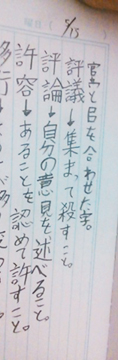 5/15
宮と呂を合わせた字。
評議→集まって殺すこと。
評論→自分の意見を述べること。
許容→あることを認めて許すこと。
移行→